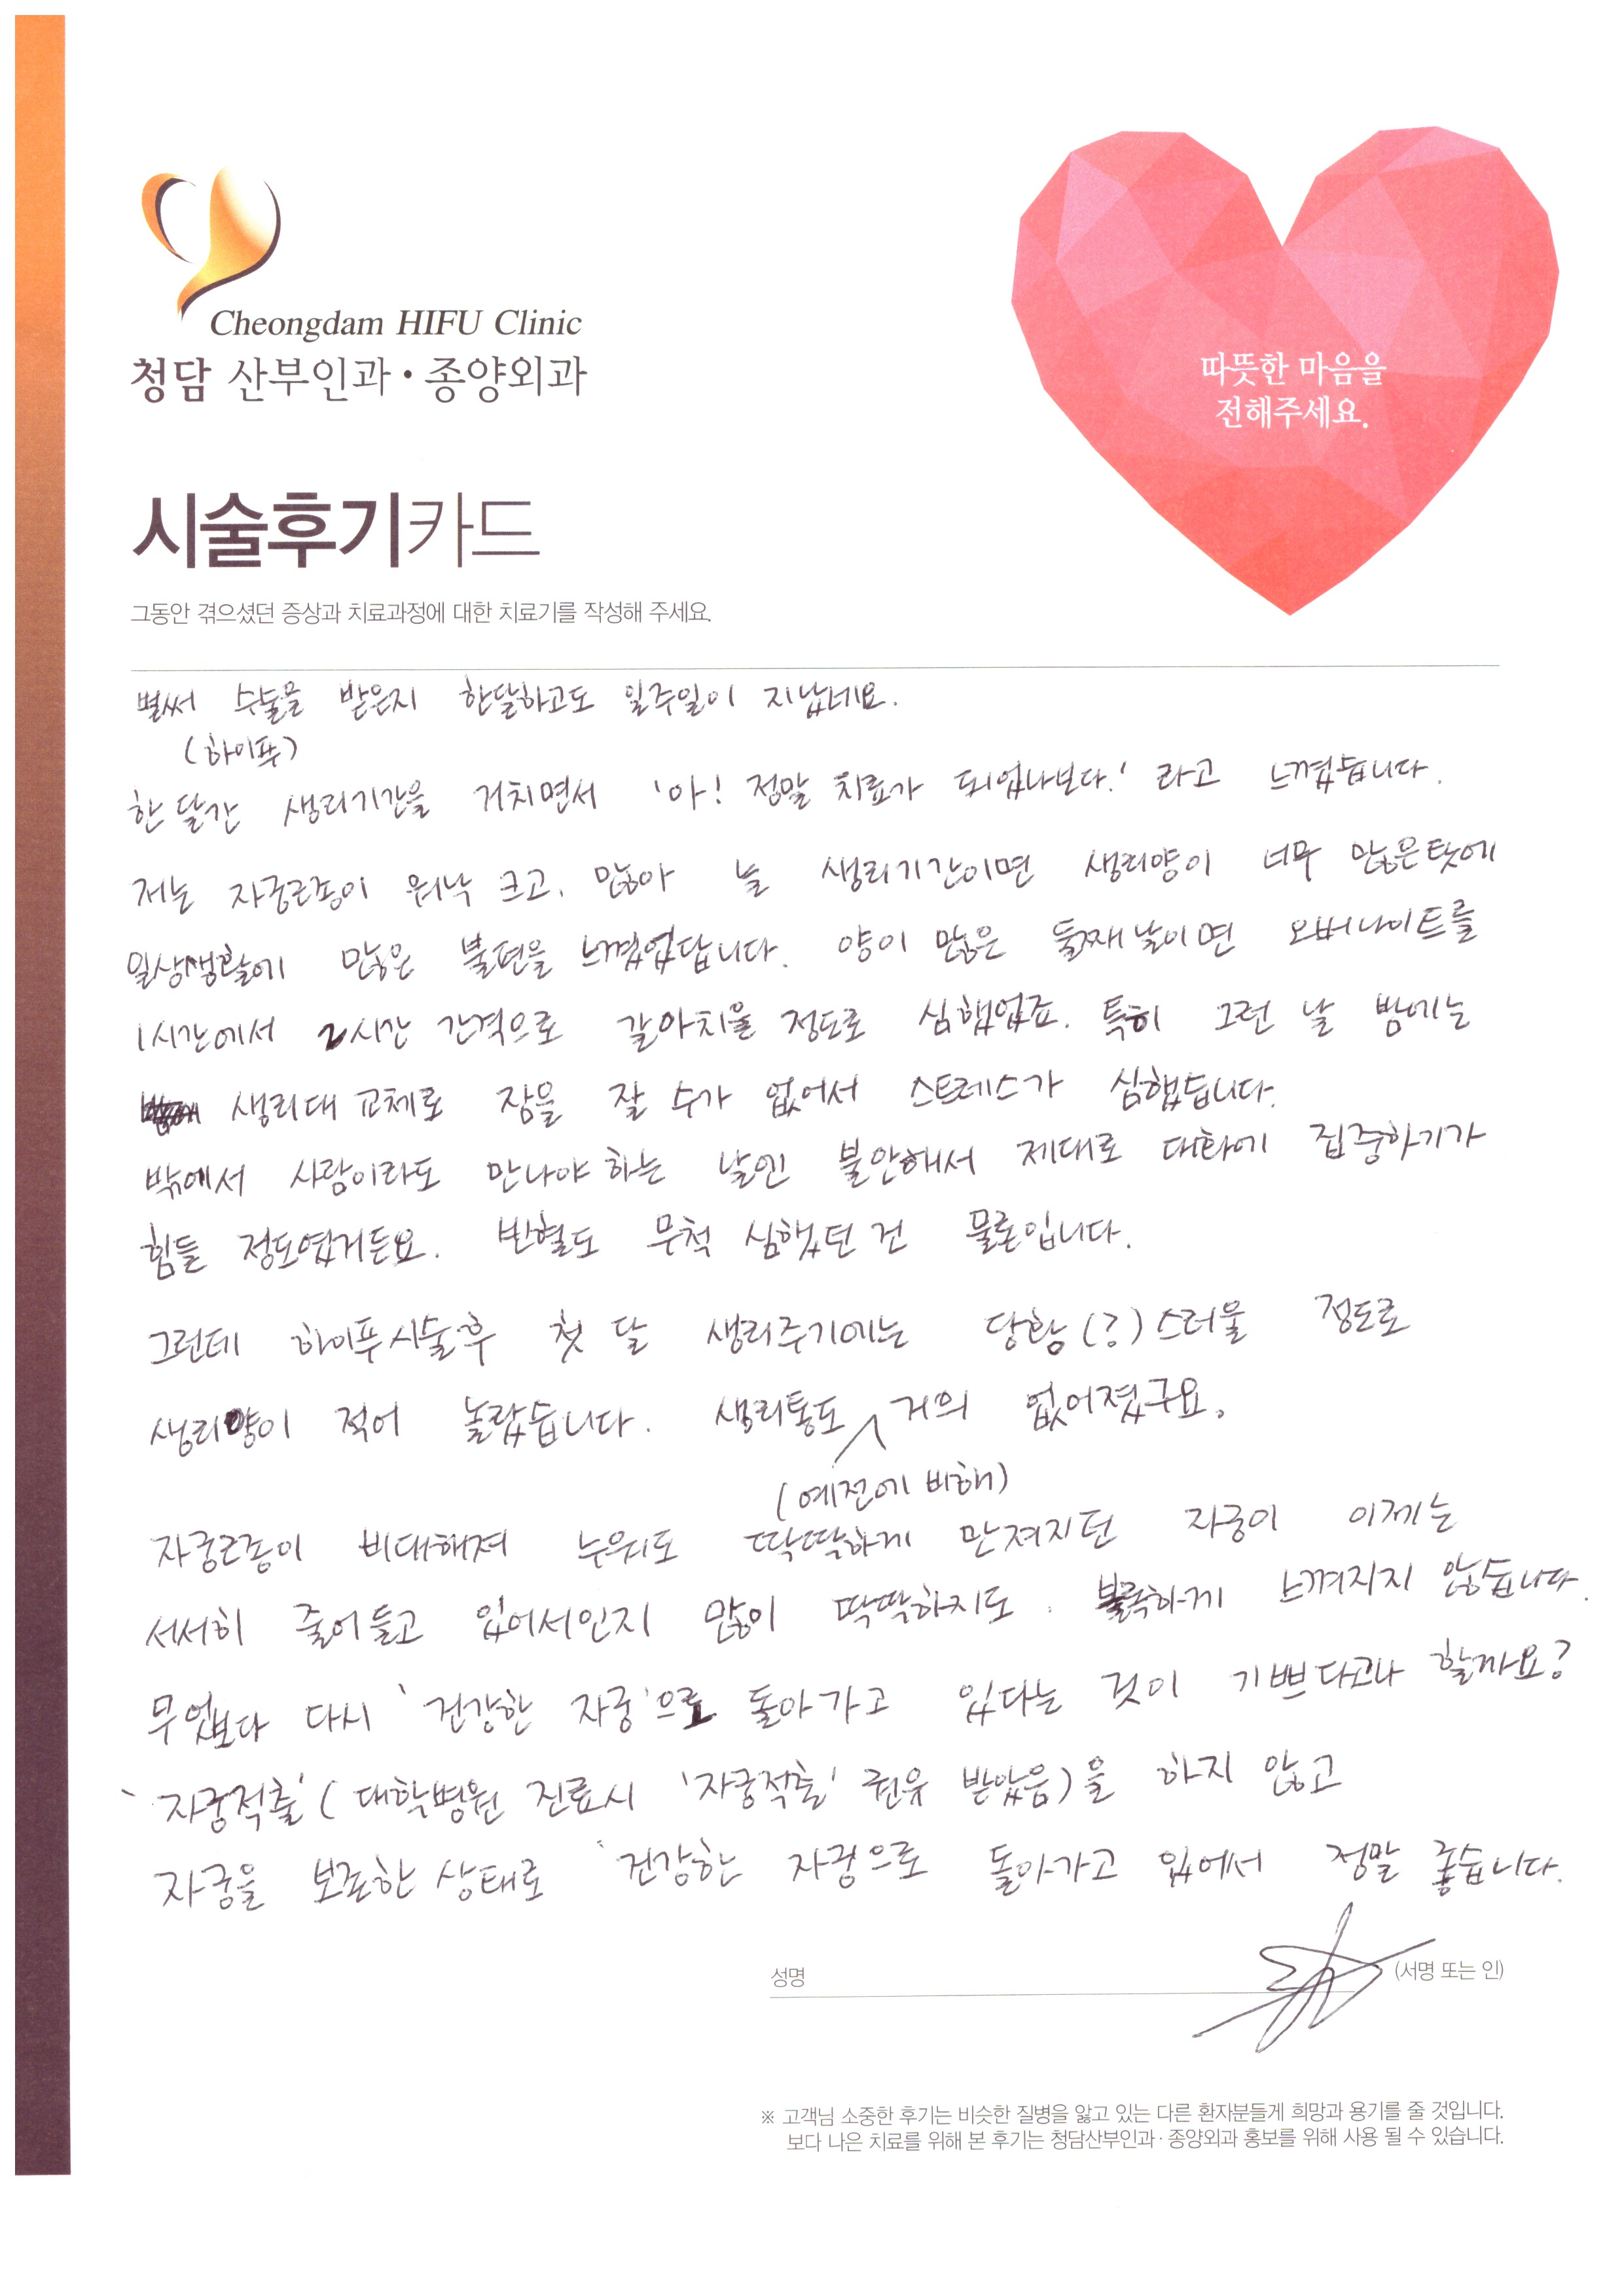 Cheongdam HIFU Clinic
청담 산부인과·종양외과
따뜻한 마음을
전해주세요.
시술후기카드
그동안 겪으셨던 증상과 치료과정에 대한 치료기를 작성해 주세요.
벌써 수술을 받은지 한달하고도 일주일이 지났네요.
(하이푸)
한 달간 생리기간을 거치면서 '아! 정말 치료가 되었나보다.' 라고 느꼈습니다.
저는 자궁근종이 워낙 크고, 많아 늘 생리기간이면 생리양이 너무 많은탓에
일상생활에 많은 불편을 느꼈었답니다. 양이 많은 둘째날이면 오버나이트를
1시간에서 2시간 간격으로 갈아치울 정도로 심했었죠. 특히 그런 날 밤에는
생리대 교체로 잠을 잘 수가 없어서 스트레스가 심했습니다.
밖에서 사람이라도 만나야 하는 날엔 불안해서 제대로 대화에 집중하기가
힘들 정도였거든요. 빈혈도 무척 심했던 건 물론입니다.
그런데 하이푸시술 후 첫 달 생리주기에는 당황(?)스러울 정도로
생리양이 적어 놀랐습니다. 생리통도 거의 없어졌구요.
(예전에 비해)
자궁근종이 비대해져 누워도 딱딱하게 만져지던 자궁이 이제는
서서히 줄어들고 있어서인지 많이 딱딱하지도, 볼록하게 느껴지지 않습니다.
무엇보다 다시 '건강한 자궁'으로 돌아가고 있다는 것이 기쁘다고나 할까요?
'자궁적출'(대학병원 진료시 '자궁적출' 권유 받았음)을 하지 않고
자궁을 보존한 상태로 '건강한 자궁으로 돌아가고 있어서 정말 좋습니다.
성명 (서명 또는 인)
※ 고객님 소중한 후기는 비슷한 질병을 앓고 있는 다른 환자분들게 희망과 용기를 줄 것입니다.
보다 나은 치료를 위해 본 후기는 청담산부인과·종양외과 홍보를 위해 사용 될 수 있습니다.